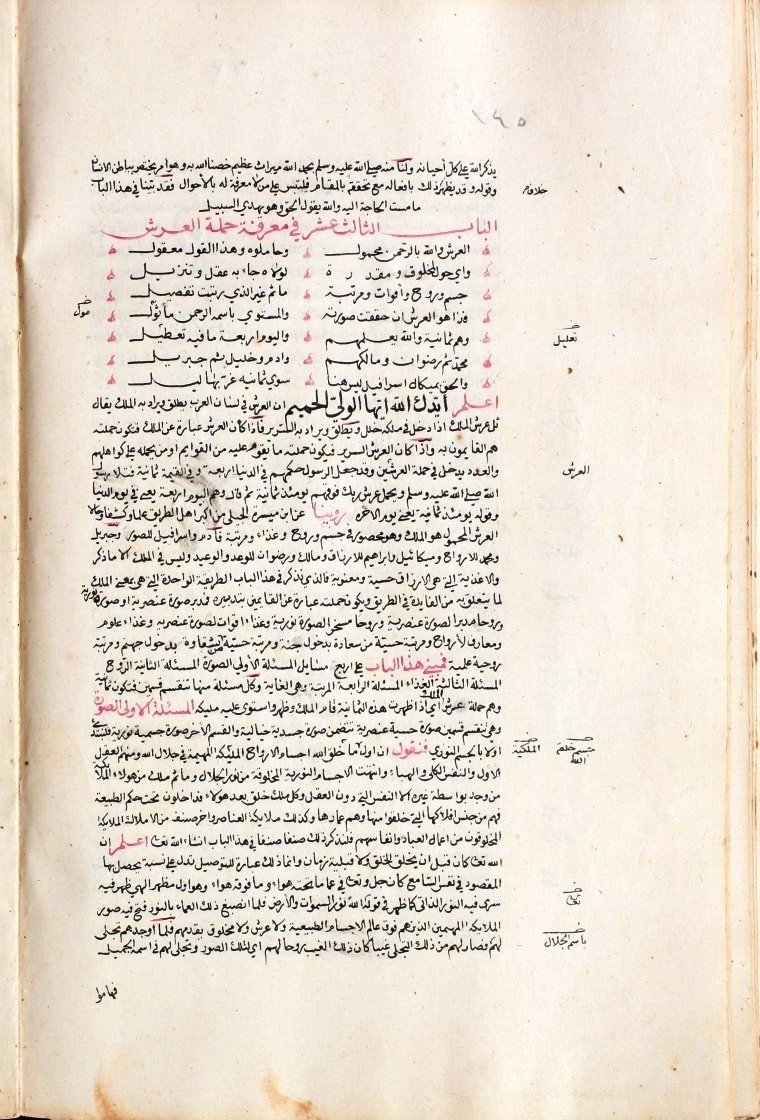 ١٤٥
يذكر الله على كل أحيانه ولنا منه صلى الله عليه وسلم بحمد الله ميراث عظيم خصنا الله به وهو أمر يختص بباطن الانسان
وقوله وقد يظهر ذلك بأفعاله مع تحققه بالمقام فيلتبس على من لا معرفة له بالأحوال فقد بينا في هذا الباب
خلافه
ما مست الحاجة اليه والله يقول الحق وهو يهدي السبيل
الباب الثالث عشر في معرفة حملة العرش
العرش والله بالرحمن محمول وحاملوه وهذا القول معقول
وأي حول لمخلوق ومقدرة لولاه جاء به عقل وتنزيل
جسم وروح وأقوات ومرتبة ما ثم غير الذي رتبت تفصيل
فذا هو العرش ان حققت صورته والمستوي باسمه الرحمن مأمول
وهم ثمانية والله يعلمهم واليوم اربعة ما فيه تعطيل
تعليل
محمد ثم رضوان ومالكهم وآدم وخليل ثم جبريل
والحق بميكال اسرافيل ليس هنا سوى ثمانية غر بهاليل
اعلم أيدك الله أيها الولي الحميم ان العرش في لسان العرب يطلق ويراد به الملك يقال
ثل عرش الملك اذا دخل في ملكه خلل ويطلق ويراد به السرير فاذا كان العرش عبارة عن الملك فتكون حملته
هم القايمون به واذا كان العرش السرير فيكون حملته ما تقوم عليه من القوايم او من يحمله على كواهلهم
والعدد يدخل في حملة العرشين وقد جعل الرسول حكمهم في الدنيا اربعة وفي القيمة ثمانية فتلا رسول
العرش
الله صلى الله عليه وسلم ويحمل عرش ربك فوقهم يومئذ ثمانية ثم قال وهم اليوم اربعة يعني في يوم الدنيا
وقوله يومئذ ثمانية يعني يوم الآخرة روينا عن ابن مسرة الجبلي من اكبر اهل الطريق علما وكشفا وحالا
العرش المحمول هو الملك وهو محصور في جسم وروح وغذاء ومرتبة فآدم واسرافيل للصور وجبريل
ومحمد للارواح وميكائيل وابراهيم للارزاق ومالك ورضوان للوعد والوعيد وليس في الملك الا ما ذكر
والاغذية التي هي الارزاق حسية ومعنوية فالذي نذكر في هذا الباب الطريقة الواحدة التي هي بمعنى الملك
لما يتعلق به من الفايدة في الطريق ويكون حملته عبارة عن القايمين بتدبيره فدبر صورة عنصرية او صورة نورية
وروحا مدبرا لصورة عنصرية وروحا مسخرا لصورة نورية وغذاء اقوات لصورة عنصرية وغذاء علوم
ومعارف لأرواح ومرتبة حسية من سعادة بدخول جنة ومرتبة حسية من شقاوة بدخول جهنم ومرتبة
روحية علمية فمبنى هذا الباب على اربع مسايل المسئلة الأولى الصورة المسئلة الثانية الروح
المسئلة الثالثة الغذاء المسئلة الرابعة المرتبة وهي الغاية وكل مسئلة منها تنقسم قسمين فتكون ثمانية
وهم حملة عرش الملك أي اذا ظهرت هذه الثمانية قام الملك وظهر واستوى عليه مليكه المسئلة الاولى الصورة
وهي تنقسم قسمين صورة حسية عنصرية تتضمن صورة جسدية خيالية والقسم الآخر صورة جسمية نورية فلنبتدئ
اولا بالجسم النوري فنقول ان اول ما خلق الله اجسام الارواح الملكية المهيمة في جلال الله ومنهم العقل
الملكية
جسم خلقه الله
الاول والنفس الكل واليها انتهت الاجسام النورية المخلوقة من نور الجلال وما ثم ملك من هولاء الملايكة
من وجد بواسطة غيره الا النفس التي دون العقل وكل ملك خلق بعد هولاء فداخلون تحت حكم الطبيعة
فهم من جنس افلاكها التي خلقوا منها وهم عمارها وكذلك ملايكة العناصر وآخر صنف من الاملاك الملايكة
المخلوقون من اعمال العباد وانفاسهم فلنذكر ذلك صنفا صنفا في هذا الباب ان شاء الله تعالى اعلم ان
الله تعالى كان قبل ان يخلق الخلق ولا قبلية بزمان وانما ذلك عبارة للتوصيل تدل على نسبة يحصل بها
المقصود في نفس السامع كان جل وتعالى في عماء ما تحته هواء وما فوقه هواء وهو اول مظهر الهي ظهر فيه
تعالى
سرى فيه النور الذاتي كما ظهر في قوله الله نور السموات والأرض فلما انصبغ ذلك العماء بالنور فتح فيه صور
الملايكة المهيمين الذين هم فوق عالم الاجسام الطبيعية ولا عرش ولا مخلوق يقدمهم فلما أوجدهم تجلى
باسم الجلال
لهم فصار لهم من ذلك التجلي غيبا كان ذلك الغيب روحا لهم أي لتلك الصور وتجلى لهم في اسمه الجميل
فهاموا